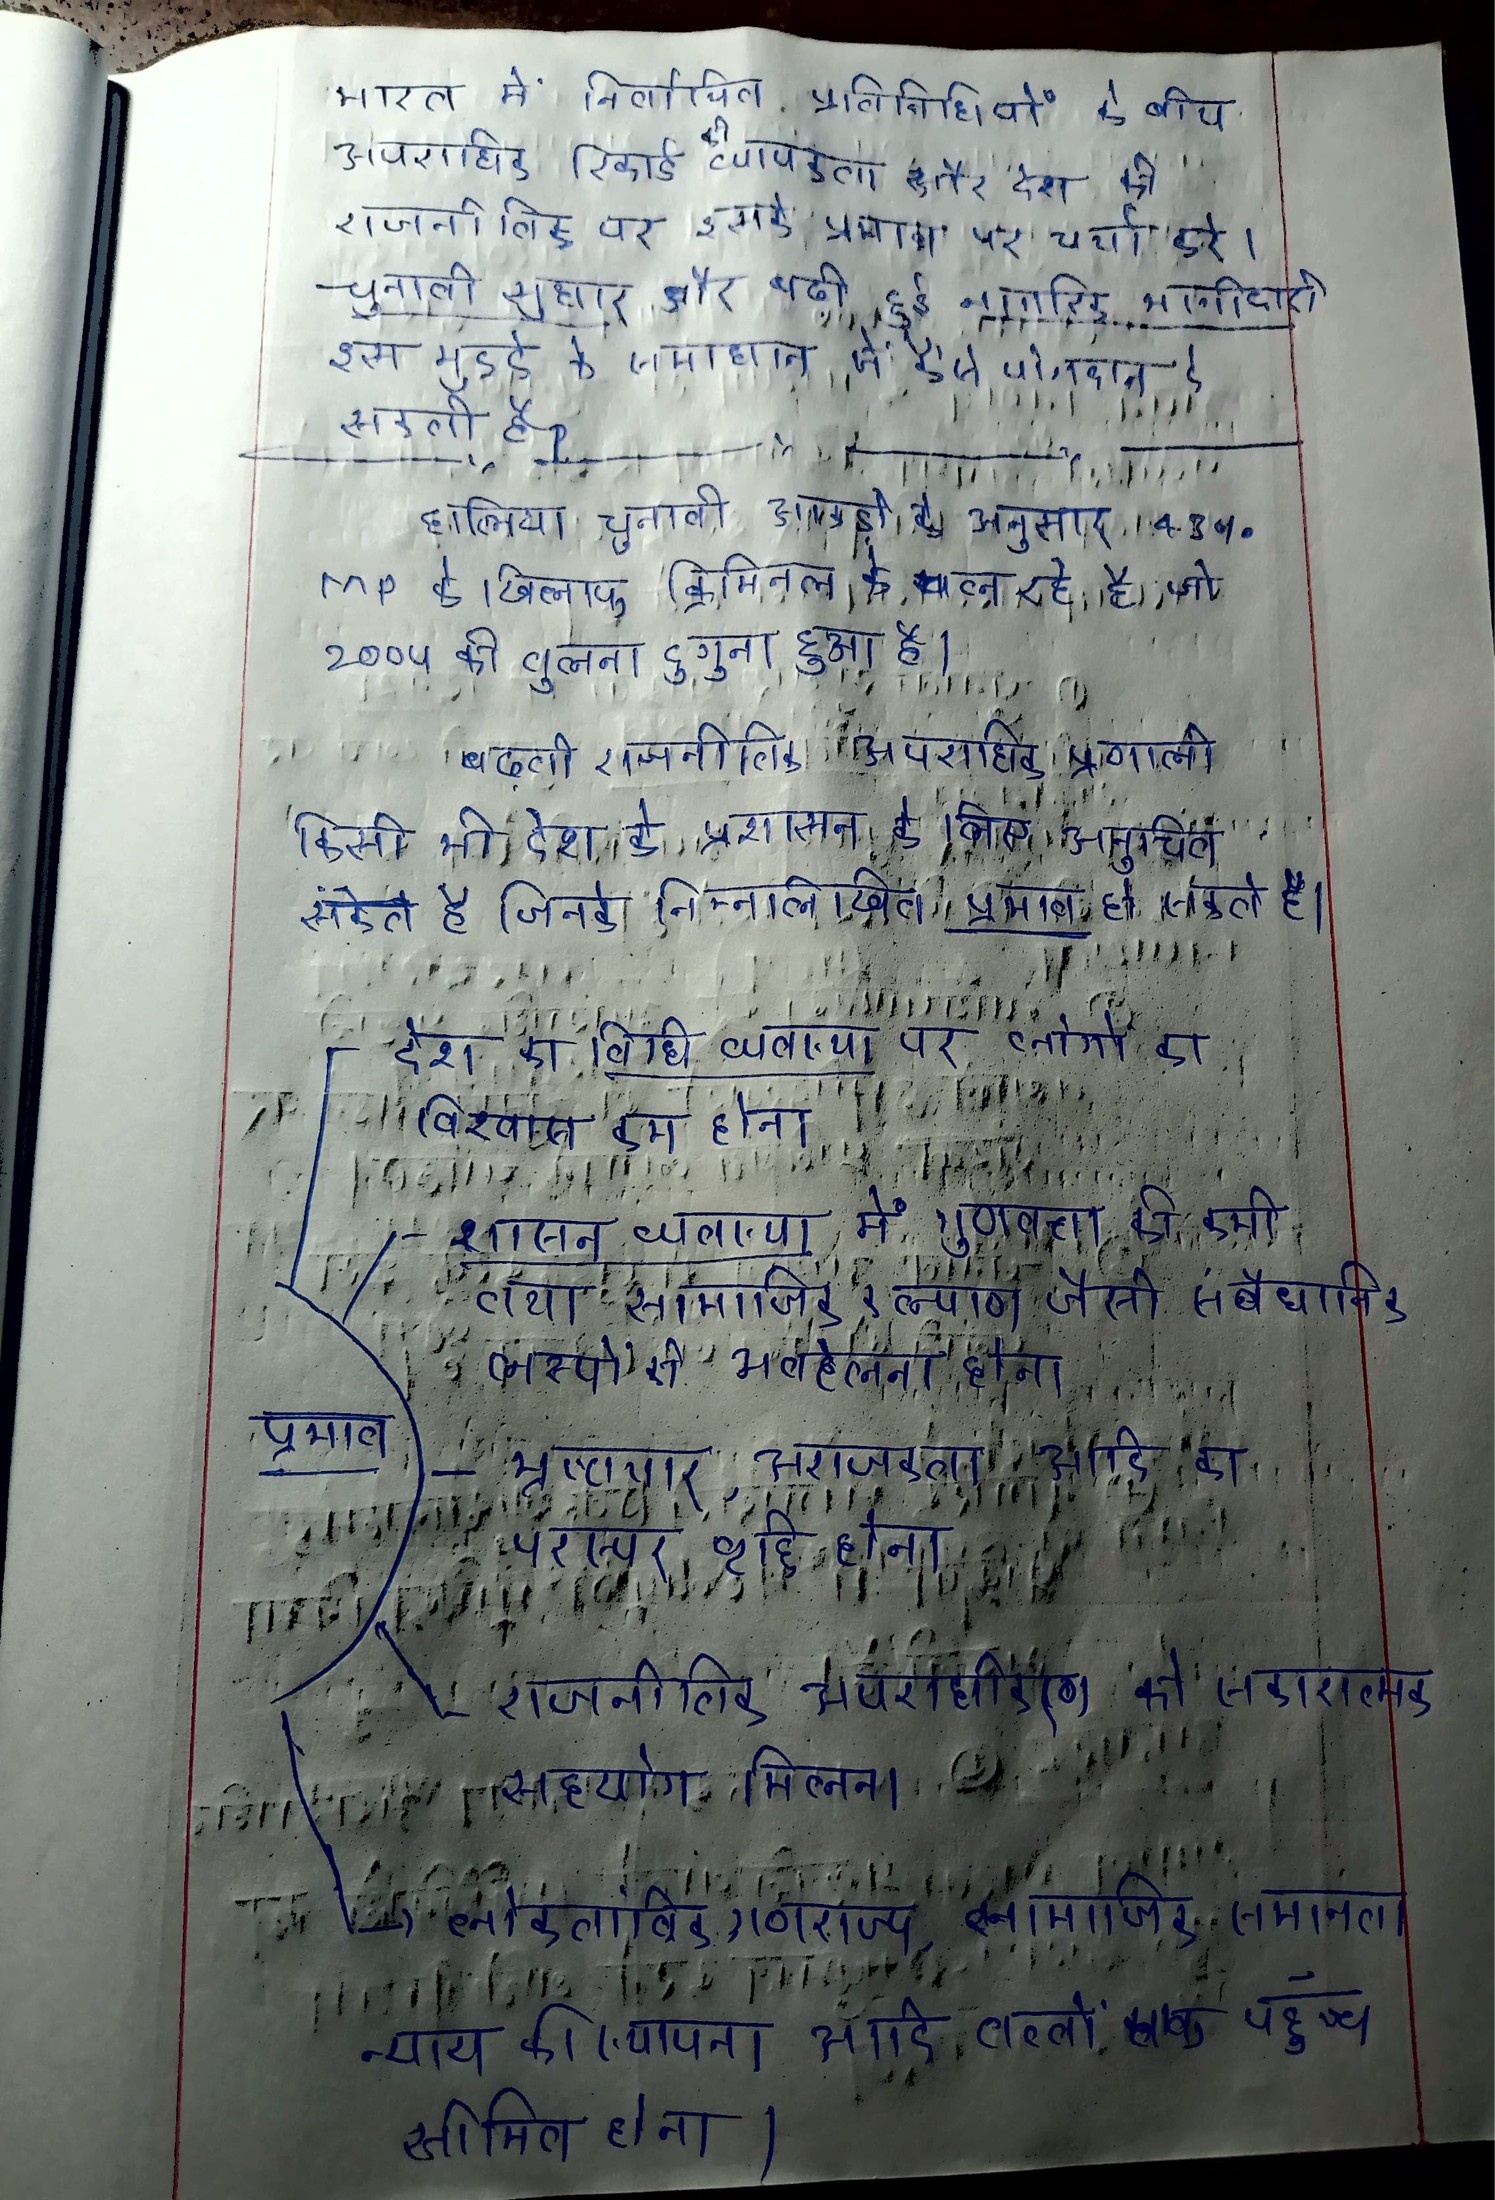 भारत में निर्वाचित प्रतिनिधियों के बीच
अपराधिक रिकार्ड की व्यापकता और देश की
राजनीतिक पर इसके प्रभाव पर चर्चा करे।
चुनावी सुधार और बढी हुई नागरिक भागीदारी
इस मुद्दे के समाधान में कैसे योगदान दे
सकती है?
हालिया चुनावी आकड़ो के अनुसार 43%
MP के खिलाफ क्रिमिनल के चल रहे है जो
2004 की तुलना दुगुना हुआ है।
बढ़ती राजनीतिक अपराधिक प्रणाली
किसी भी देश के प्रशासन के लिए अनुचित
संकेत है जिनके निम्नालिखित प्रभाव हो सकते है।
देश का विधि व्यवस्था पर लोगों का
विश्वास कम होना
- शासन व्यवस्था में गुणवत्ता की कमी
तथा सामाजिक कल्याण जैसी संवैधानिक
लक्ष्यो की अवहेलना होना
प्रभाव
- भ्रष्टाचार, अराजकता आदि का
परस्पर वृद्दि होना
- राजनीतिक अपराधीकरण को सकारात्मक
सहयोग मिलना
→ लोकतांत्रिक गणराज्य, सामाजिक समानता
न्याय की स्थापना आदि तत्वों तक पहुँच
सीमित होना।